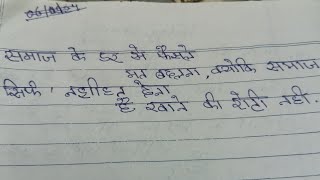 समाज के डर से फैसले
मत बदलना, क्योंकि समाज
सिर्फ नशीहत देता
है खाने की रोटी नही.